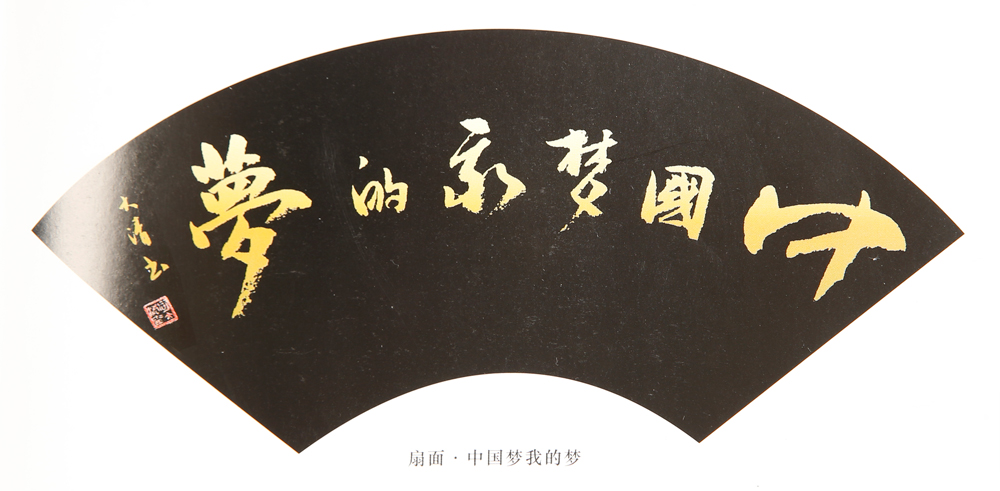 中國梦我的夢
木清书
扇面·中国梦我的梦